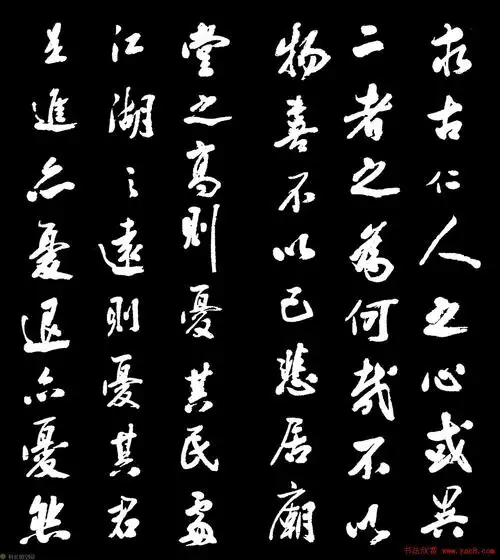 求古仁人之心或異
二者之為何哉不以
物喜不以己悲居廟
堂之高則憂其民處
江湖之遠則憂其君
是進亦憂退亦憂然
书法欣赏 www.yac8.com